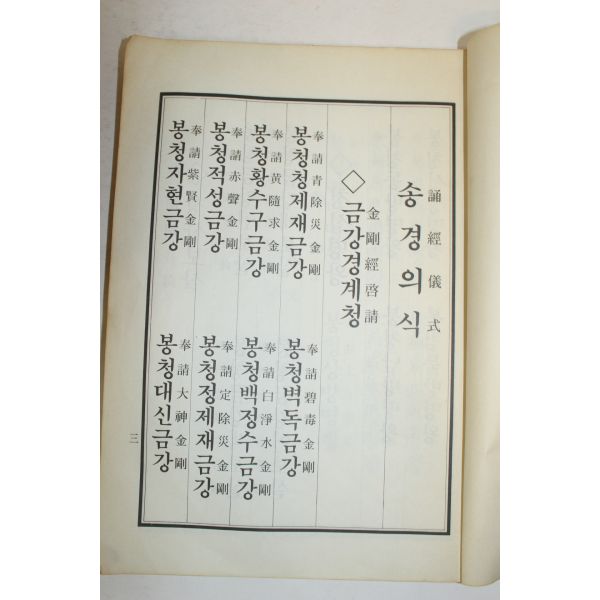 송경의식
誦經儀式
◇금강경계청
金剛經啓請
봉청청제재금강
奉請青除災金剛
봉청벽독금강
奉請碧毒金剛
봉청황수구금강
奉請黃隨求金剛
봉청백정수금강
奉請白淨水金剛
봉청적성금강
奉請赤聲金剛
봉청정제재금강
奉請定除災金剛
봉청자현금강
奉請紫賢金剛
봉청대신금강
奉請大神金剛
三